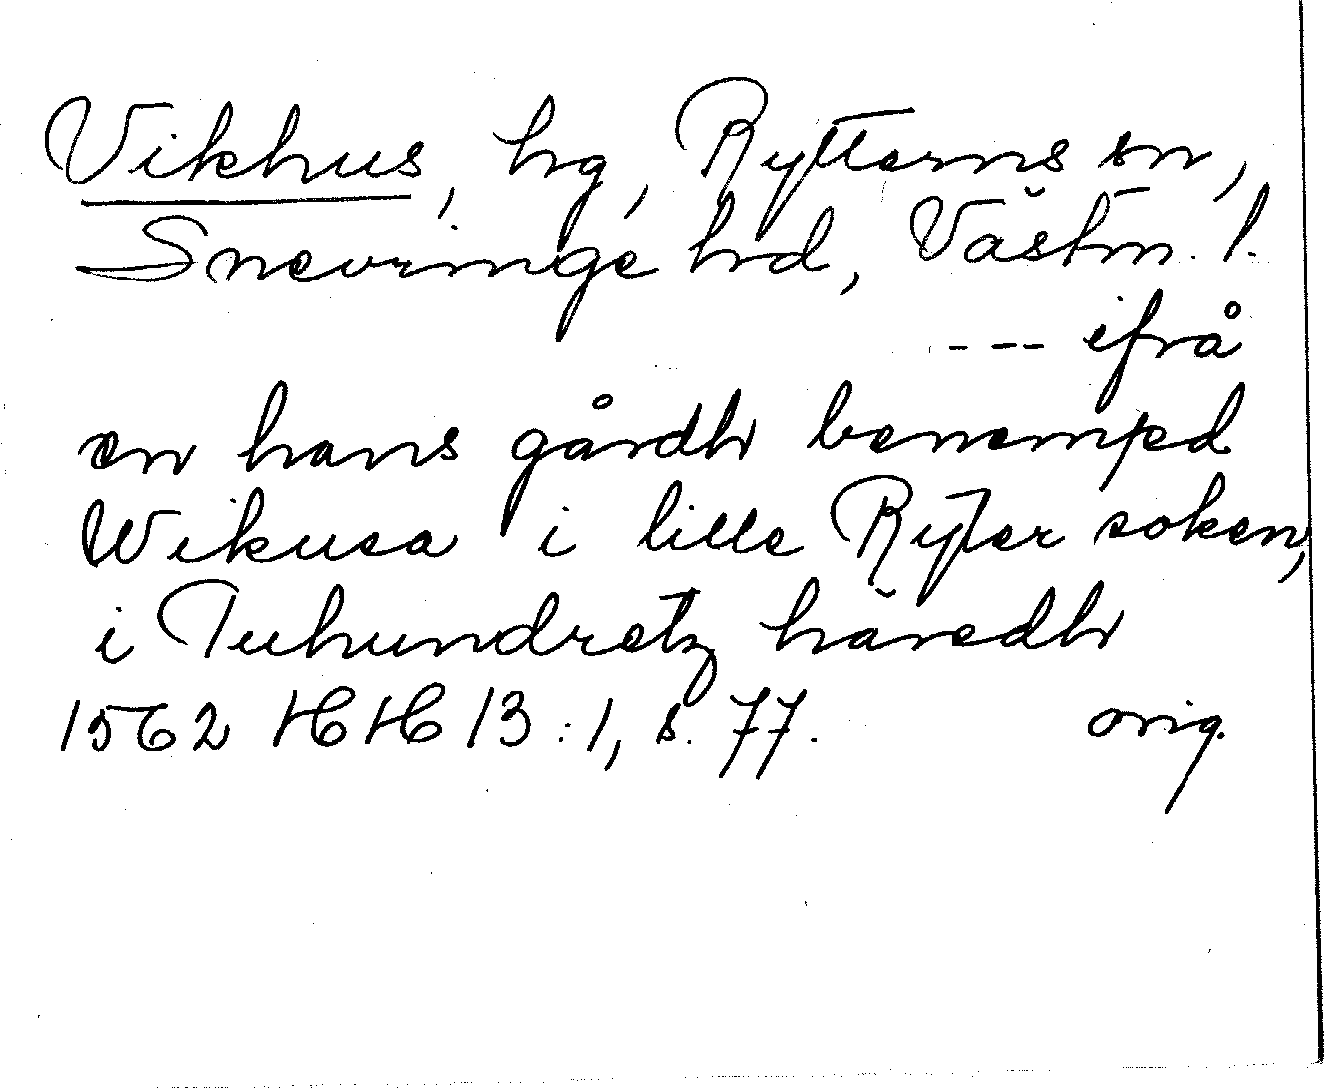 Vikhus, hg, Rytterns sn,
Snevringe hd, Västm. l.
--- ifrå
en hans gårdh benempd
Wikusa i lille Ryter soken,
i Tuhundretz häredh
1562 HH 13:1, s. 77. orig.